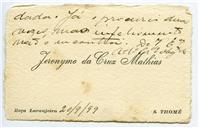 dado: Já o procurei duas
vezes, mas infelizmente
não o encontrei.
Jeronymo da Cruz Mathias
Roça Laranjeira 20/9/89 S. THOMÉ